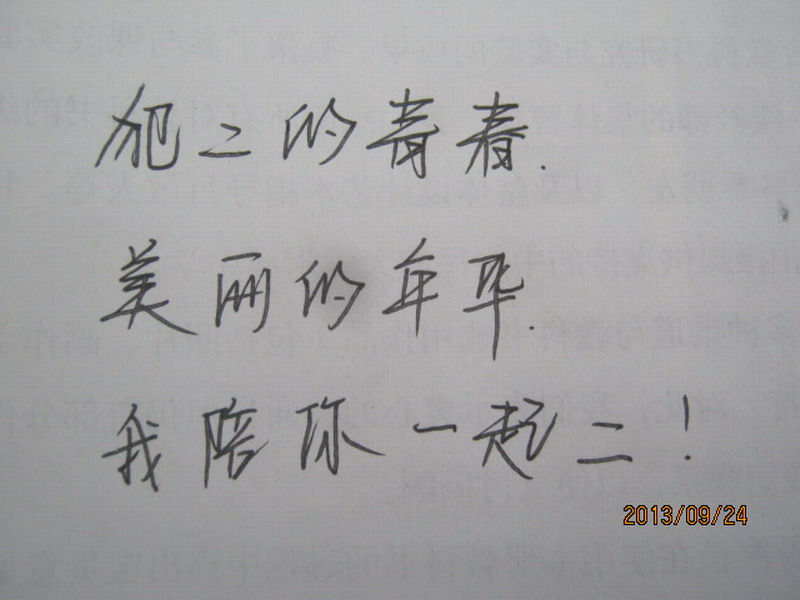 犯二的青春.
美丽的年华.
我陪你一起二!
2013/09/24